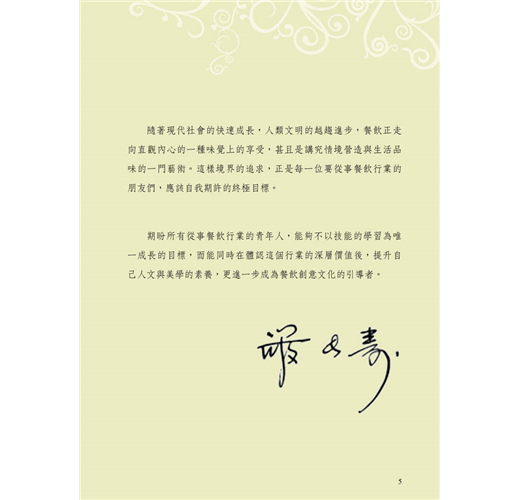 隨著現代社會的快速成長，人類文明的越趨進步，餐飲正走
向直觀內心的一種味覺上的享受，甚且是講究情境營造與生活品
味的一門藝術。這樣境界的追求，正是每一位要從事餐飲行業的
朋友們，應該自我期許的終極目標。
期盼所有從事餐飲行業的青年人，能夠不以技能的學習為唯
一成長的目標，而能同時在體認這個行業的深層價值後，提升自
己人文與美學的素養，更進一步成為餐飲創意文化的引導者。
嚴長壽
5